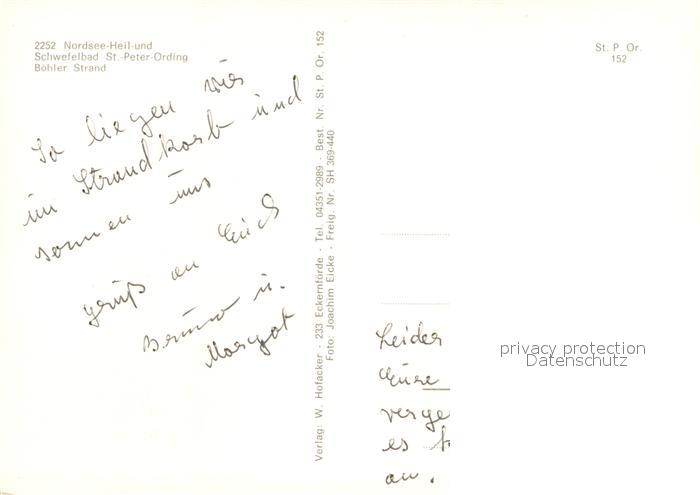 2252 Nordsee-Heil-und
Schwefelbad St.-Peter-Ording
Böhler Strand
So liegen wir
im Strandkorb und
sonnen uns
gruß an Euch
Bruno u.
Margot
Verlag: W. Hofacker - 233 Eckernförde - Tel. 04351-2989 - Best. Nr. St. P. Or. 152
Foto: Joachim Eicke - Freig. Nr. SH 369-440
St. P. Or.
152
Leider
Eure
verge
es
an.
privacy protection
Datenschutz